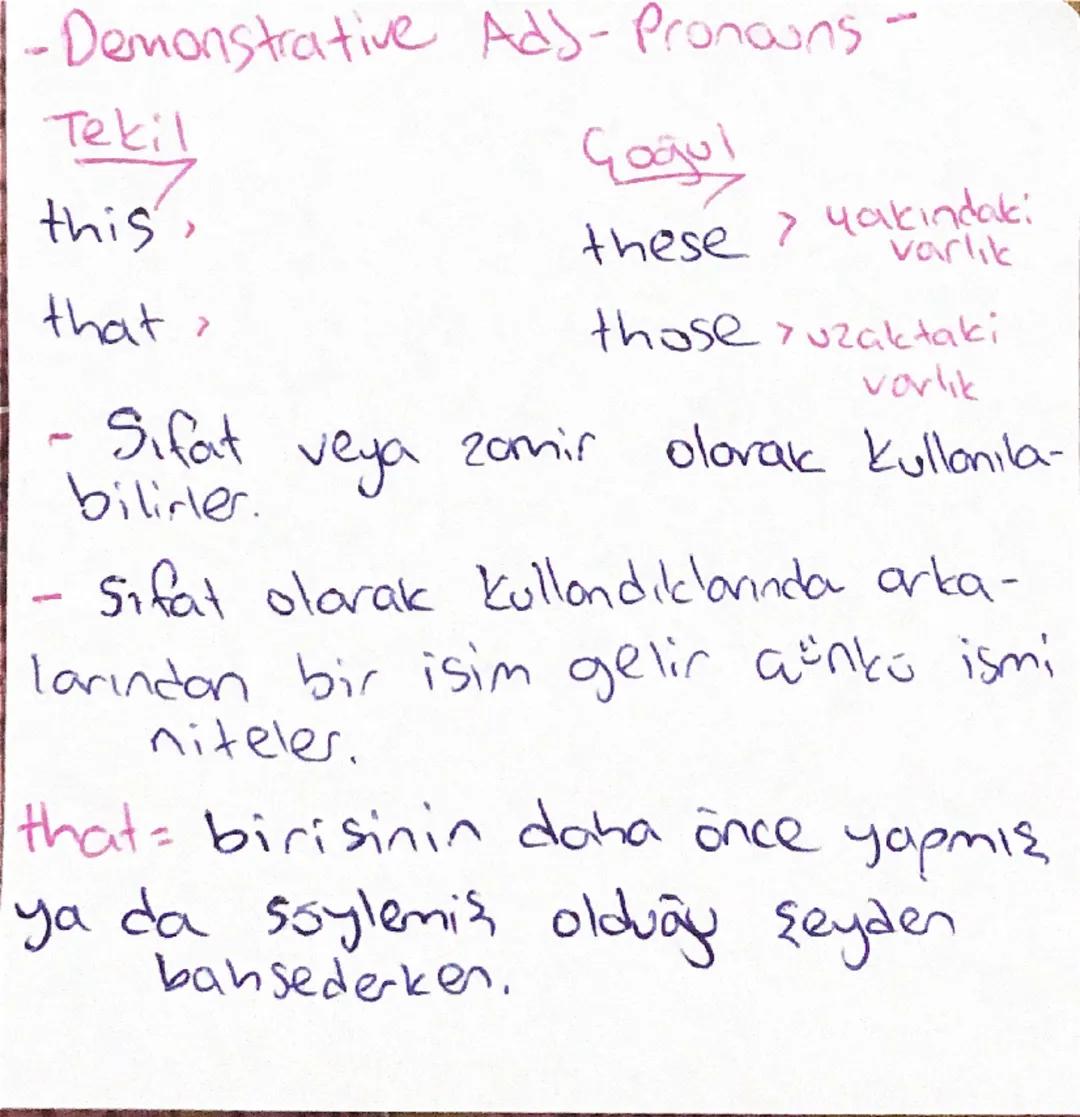 - Demonstrative Adj - Pronouns -
Tekil Çoğul
this > these > yakındaki
varlık
that > those > uzaktaki
varlık
- Sıfat veya zamir olarak kullanıla-
bilirler.
- Sıfat olarak kullandıklarında arka-
larından bir isim gelir çünkü ismi
niteler.
that = birisinin daha önce yapmış
ya da söylemiş olduğu şeyden
bahsederken.